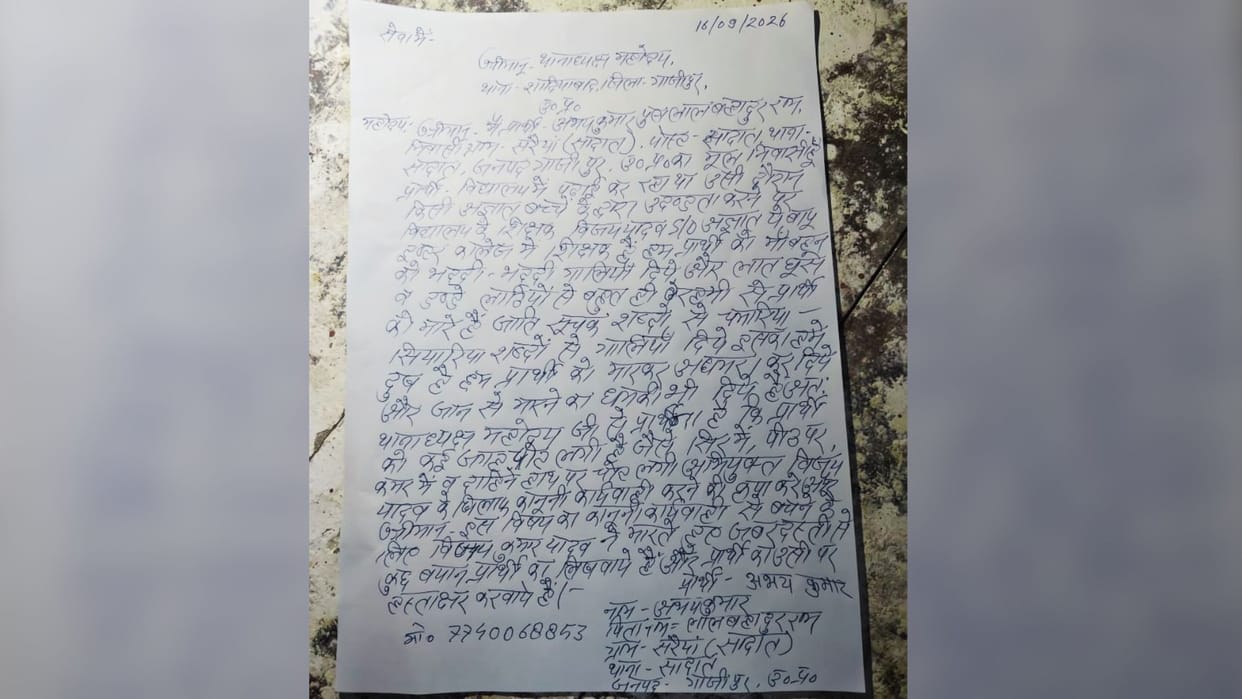 सेवा में:-
16/09/2026
श्रीमान्- थानाध्यक्ष महोदय,
थाना- शादियाबाद, जिला- गाजीपुर,
उ० प्र०
महोदय, श्रीमान्- मैं प्रार्थी- अभय कुमार पुत्र लाल बहादुर राम,
निवासी ग्राम- सरैयां (सादात), पोस्ट- सादात, थाना-
सादात, जनपद गाजीपुर, उ० प्र० का मूल निवासी हूँ
प्रार्थी- विद्यालय में पढ़ाई कर रहा था उसी दौरान
किसी अज्ञात बच्चें के द्वारा उदण्डता करने पर
विद्यालय के शिक्षक विजय यादव S/O अज्ञात ये बापू
इण्टर कालेज में शिक्षक हैं हम प्रार्थी को माँ बहन
की भद्दी- भद्दी गालियाँ दिये और लात घूसे
व डण्डे लाठियों से बहुत ही बेरहमी से प्रार्थी
को मारे हैं जाति सूचक शब्दो से चमारिया-
सियारिया शब्दों से गालियाँ दिये इसका हमे
दुख है हम प्रार्थी को मारकर अधमरा कर दिये
और जान से मारने का धमकी भी दिये है अतः
थानाध्यक्ष महोदय जी से प्रार्थना है कि प्रार्थी
को कई जगह चोट लगी है जैसे सिर में, पीठ पर,
कमर में व दाहिने हाथ पर चोट लगी अभियुक्त विजय
यादव के खिलाफ कानूनी कार्यवाही करने की कृपा करे और
श्रीमान- इस विषय का कानूनी कार्यवाही से बचने के
लिए विजय कुमार यादव ने मारते हुए जबरदस्ती से
कुछ बयान प्रार्थी का लिखवाये हैं और प्रार्थी का उसी पर
हस्ताक्षर करवाये है।-
प्रार्थी- अभय कुमार
नाम- अभय कुमार
पिता नाम= लाल बहादुर राम
ग्राम- सरैयां (सादात)
थाना- सादात
जनपद- गाजीपुर, उ० प्र०
मो० 7740068853